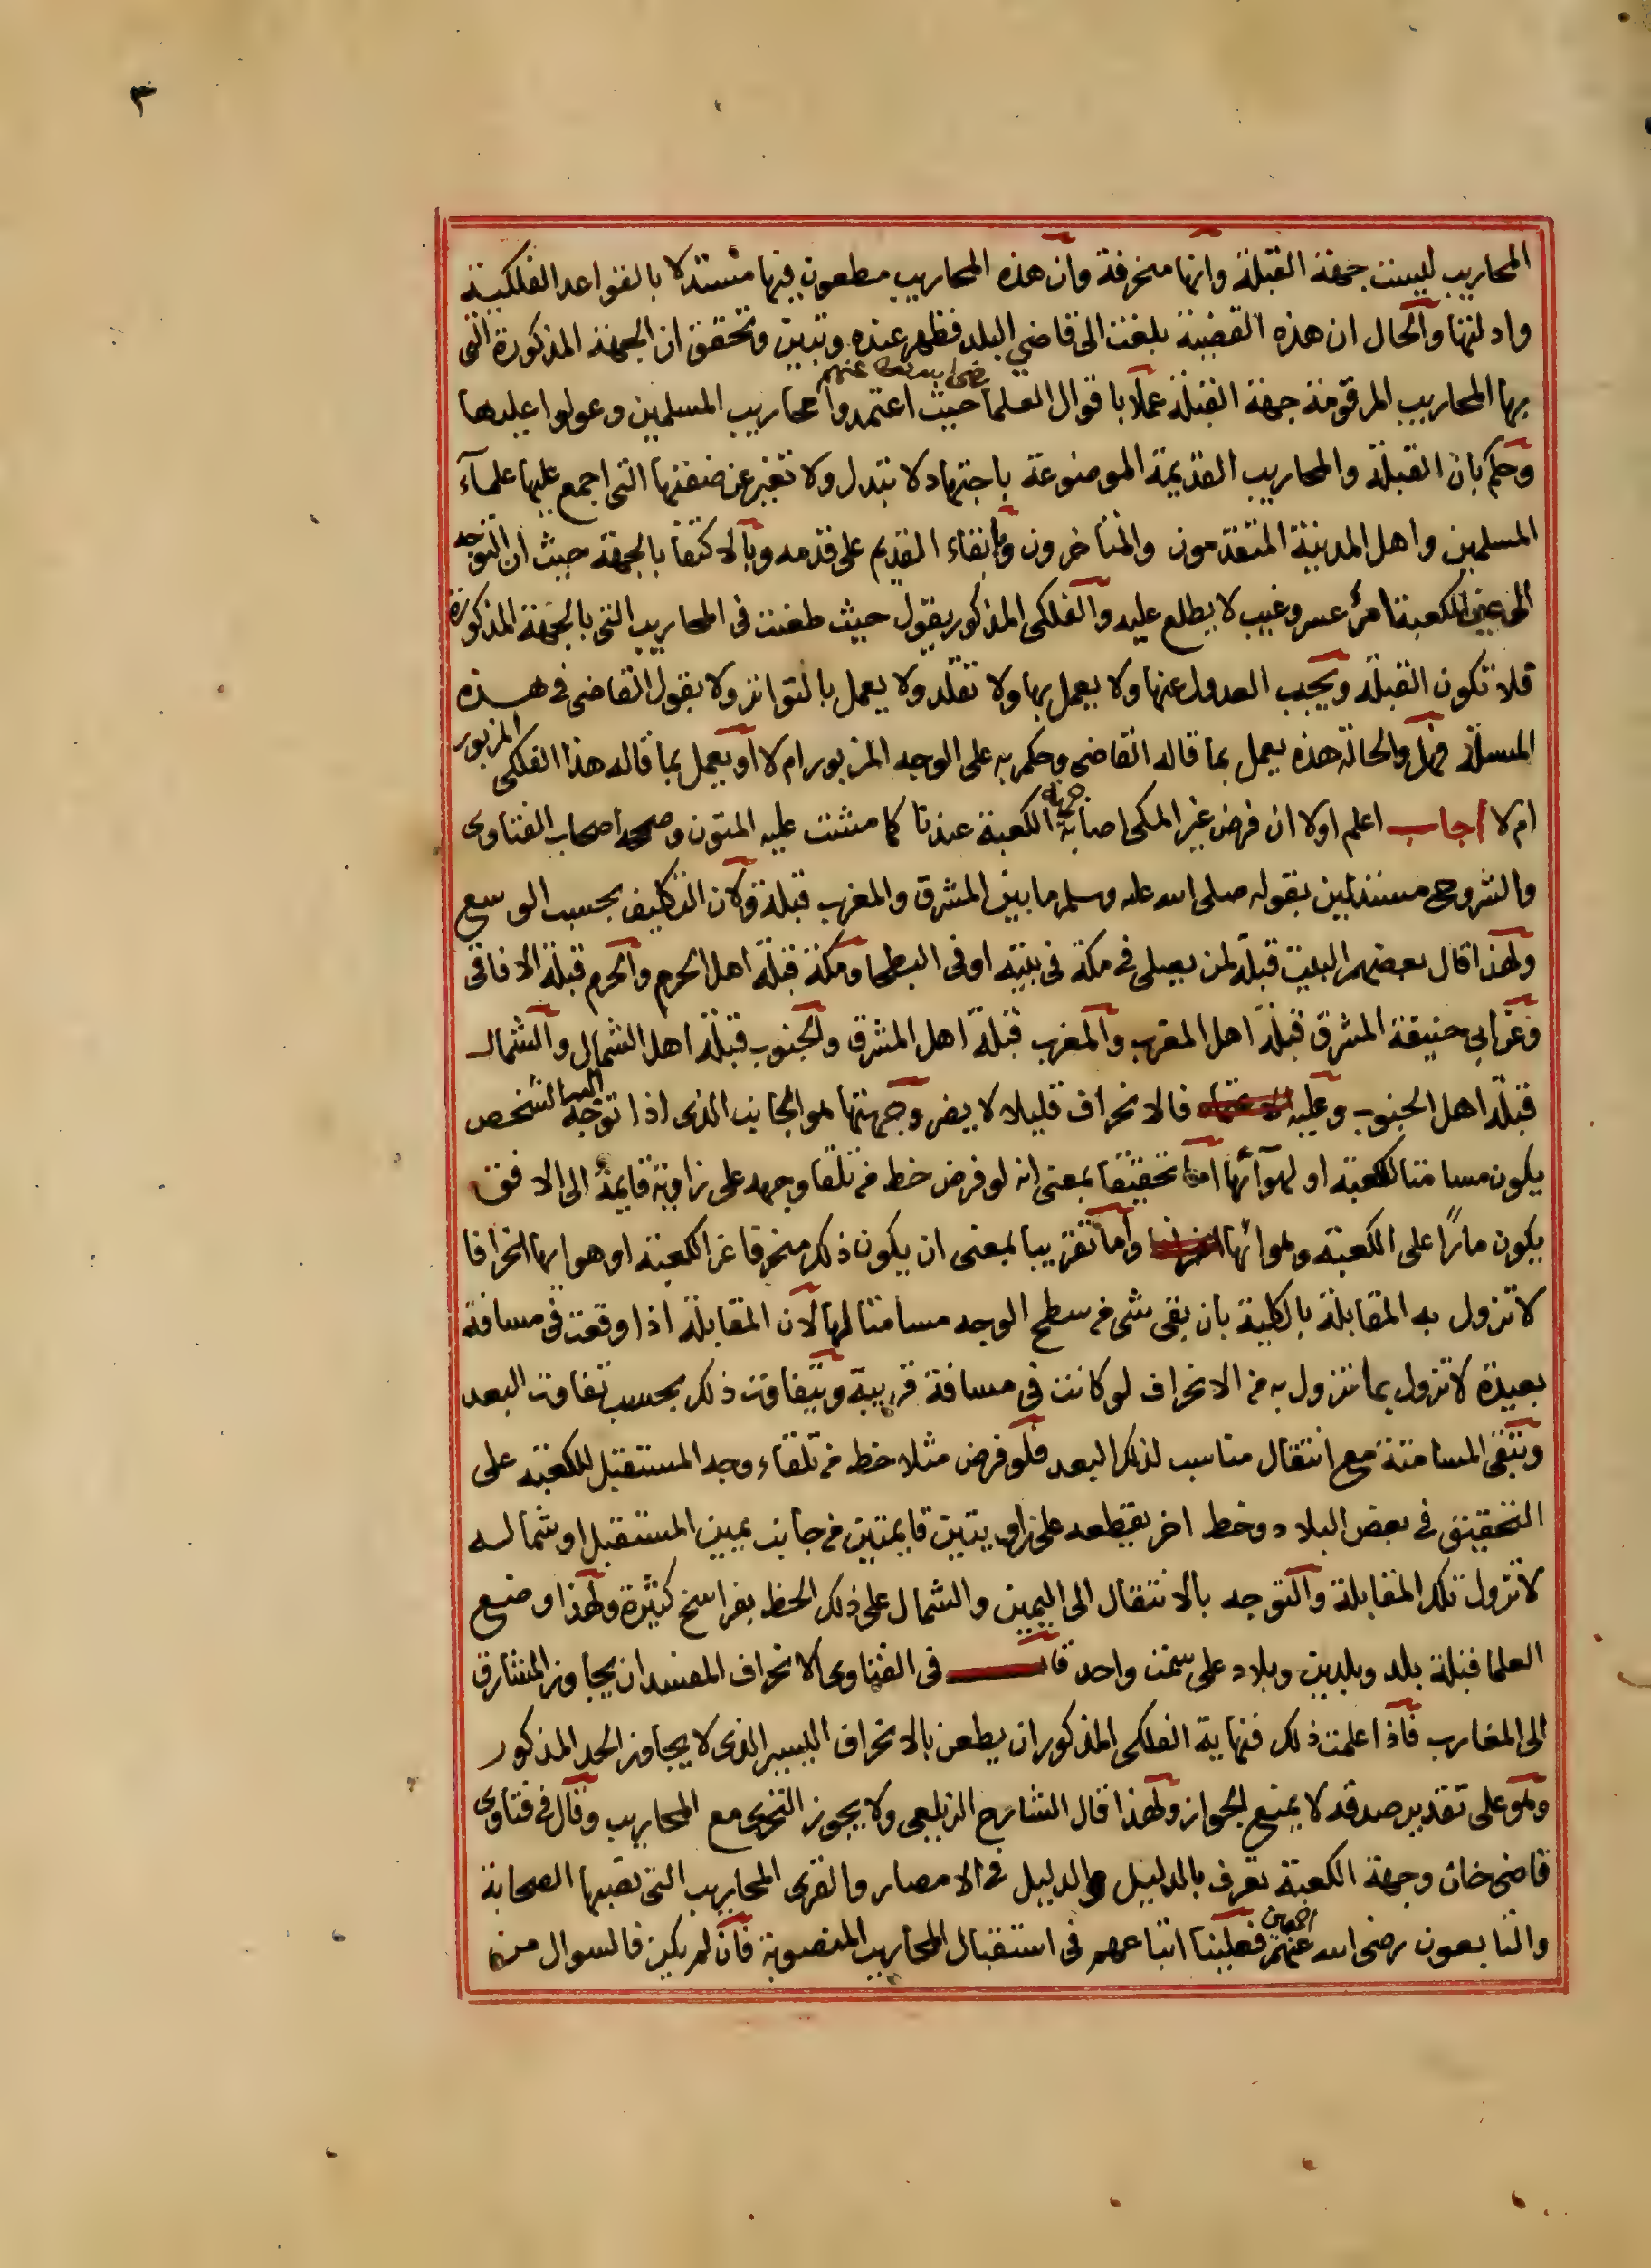 ٣
المحاريب ليست جهة القبلة وانها منحرفة وان هذه المحاريب مطعون فيها مستدلا بالقواعد الفلكية
وادلتها والحال ان هذه القضية بلغت الى قاضي البلد فظهر عنده وتبين وتحقق ان الجهة المذكورة التى
بها المحاريب المرقومة جهة القبلة عملا باقوال العلما رضى الله تعالى عنهم حيث اعتمدوا محاريب المسلمين وعولوا عليها
وحكم بان القبلة والمحاريب القديمة الموضوعة باجتهاد لا تبدل ولا تغير عن صفتها التى اجمع عليها علمآء
المسلمين واهل المدينة المتقدمون والمتاخرون وبابقاء القديم على قدمه وبالاكتفا بالجهة حيث ان التوجه
الى عين الكعبة امر عسر وغيب لا يطلع عليه والفلكى المذكور يقول حيث طعنت فى المحاريب التى بالجهة المذكورة
فلا تكون القبلة ويجب العدول عنها ولا يعمل بها ولا تقلد ولا يعمل بالتواتر ولا بقول القاضى فى هذه
المسئلة فهل والحالة هذه يعمل بما قاله القاضى وحكم به على الوجه المزبور ام لا او يعمل بما قاله هذا الفلكى المزبور
ام لا اجاب اعلم اولا ان فرض غير المكى اصابة جهة الكعبة عندنا كما مشت عليه المتون وصححه اصحاب الفتاوى
والشروح مستدلين بقوله صلى الله عليه وسلم ما بين المشرق والمغرب قبلة ولان التكليف بحسب الوسع
ولهذا قال بعضهم البيت قبلة لمن يصلى فى مكة فى بيته او فى البطحا ومكة قبلة اهل الحرم والحرم قبلة الافاقى
وعن ابى حنيفة المشرق قبلة اهل المغرب والمغرب قبلة اهل المشرق والجنوب قبلة اهل الشمال والشمال
قبلة اهل الجنوب وعليه فالانحراف قليلا لا يضر وجهتها هو الجانب الذى اذا توجه اليه الشخص
يكون مسامتا للكعبة او لهوآئها اما تحقيقا بمعنى انه لو فرض خط من تلقا وجهه على زاوية قايمة الى الافق
يكون مارًا على الكعبة وهوائها واما تقريبا بمعنى ان يكون ذلك منحرفا عن الكعبة او هوايها انحرافا
لا تزول به المقابلة بالكلية بان بقى شى من سطح الوجه مسامتا لها لان المقابلة اذا وقعت فى مسافة
بعيدة لا تزول بما تزول به من الانحراف لو كانت فى مسافة قريبة ويتفاوت ذلك بحسب تفاوت البعد
وتبقى المسامتة مع انتقال مناسب لذلك البعد فلو فرض مثلا خط من تلقاء وجه المستقبل للكعبة على
التحقيق فى بعض البلاد وخط اخر يقطعه على زاويتين قايمتين من جانب يمين المستقبل او شماله
لا تزول تلك المقابلة والتوجه بالانتقال الى اليمين والشمال على ذلك الخط بفراسخ كثيرة ولهذا وضع
العلما قبلة بلد وبلدين وبلاد على سمت واحد قال فى الفتاوى الانحراف المفسد ان يجاوز المشارق
الى المغارب فاذا علمت ذلك فنهاية الفلكى المذكور ان يطعن بالانحراف اليسير الذى لا يجاوز الحد المذكور
وهو على تقدير صدقه لا يمنع الجواز ولهذا قال الشارح الزيلعى ولا يجوز التحرى مع المحاريب وقال فى فتاوى
قاضى خان وجهة الكعبة تعرف بالدليل والدليل فى الامصار والقرى المحاريب التى نصبها الصحابة
والتابعون رضى الله عنهم اجمعين فعلينا اتباعهم فى استقبال المحاريب المنصوبة فان لم يكن فالسوال من